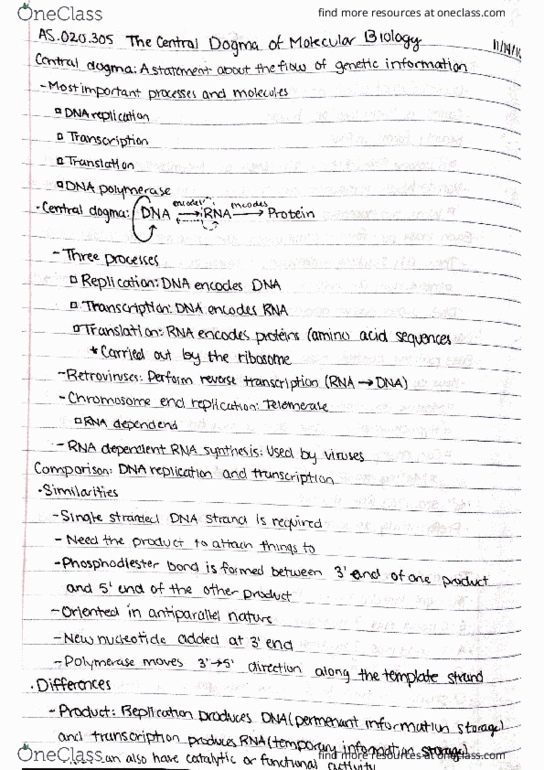 OneClass
find more resources at oneclass.com
AS.020.305 The Central Dogma of Molecular Biology
Central dogma: A statement about the flow of genetic information
- Most important processes and molecules
DNA replication
Transcription
Translation
DNA polymerase
· Central dogma: DNA encodes RNA encodes Protein
- Three processes
Replication: DNA encodes DNA
Transcription: DNA encodes RNA
Translation: RNA encodes proteins (amino acid sequences
* Carried out by the ribosome
- Retroviruses: Perform reverse transcription (RNA → DNA)
- Chromosome end replication: Telemerase
RNA dependend
- RNA dependent RNA synthesis: Used by viruses
Comparison: DNA replication and transcription
· Similarities
- Single stranded DNA strand is required
- Need the product to attach things to
- Phosphodiester bond is formed between 3' end of one product
and 5' end of the other product
- Oriented in antiparallel nature
- New nucleotide added at 3' end
- Polymerase moves 3'→5' direction along the template strand
· Differences
- Product: Replication produces DNA (permenant information storage)
and transcription produces RNA (temporary information storage)
OneClass
find more resources at oneclass.com
can also have catalytic or functional activity